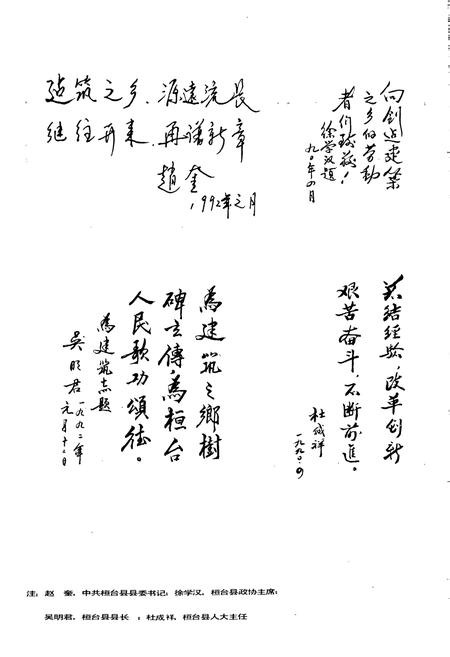 建筑之乡、源遠流長
继往开来、再谱新章
趙奎
1992年元月
向创造建築
之乡的劳动
者们致敬！
徐学汉题
九〇年四月
为建筑之鄉樹
碑立傳，为桓台
人民歌功頌德。
为建筑志题
吴明君
一九九二年
元月十二日
总结经验，改革创新
艰苦奋斗，不断前進。
杜成祥
一九九〇.四
注：赵　奎，中共桓台县县委书记；徐学汉，桓台县政协主席；
吴明君，桓台县县长　；杜成祥，桓台县人大主任